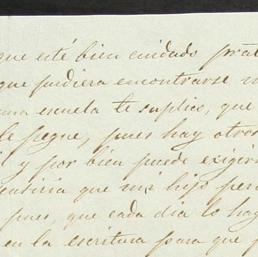 que esté bien cuidado
que pudiera encontrarse
una escuela te suplico, que
le pegue, pues hay otros
y por bien puede exigir
sentiria que mi hijo per
pues, que cada dia lo hag
en la escritura para que p